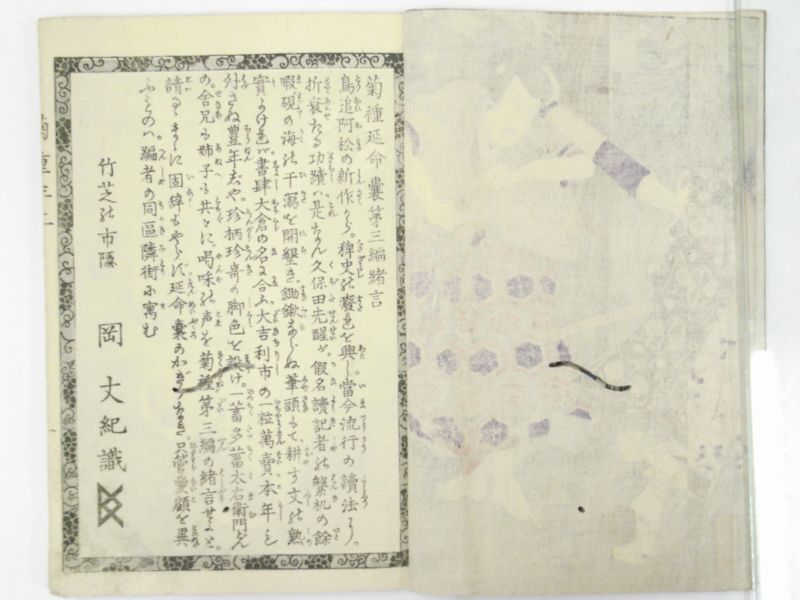 菊種延命嚢第三編緒言
鳥追阿松の新作から。稗史の廢色を興し。當今流行の讀法より。
折衰たる功績ハ。是なん久保田先醒が。假名讀記者の繁机の餘
暇硯の海の干瀉を開墾き。鋤鍬ならぬ筆頭もて耕す文の熟
實よけれバ。書肆大倉の名に合ふ。大吉利市の一粒萬賣。本年も
外さぬ豊年志や。珍柄珍奇の脚色を設け。一蓄多蓄太右衛門どん
の。舎兄も姉子も共々に。喝咏の声を菊種第三編の緒言せよと。
請るゝまゝに固辞もやらず。延命嚢の 只管愛顧を異
ふものハ。編者の同區隣街に寓む
竹芝の市隠
岡丈紀識